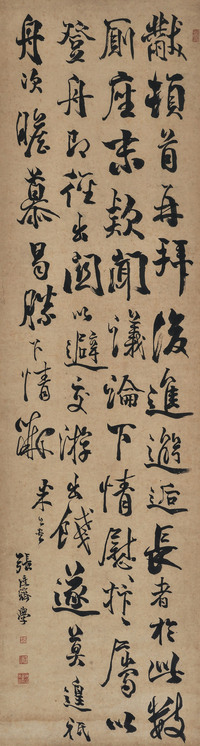 黻頓首再拜後進邂逅長者於此數
廁座末款聞議論下情慰忭屬以
登舟即徑出關以避交游出餞遂莫遑祗
舟次瞻慕曷勝下情黻
張廷濟學